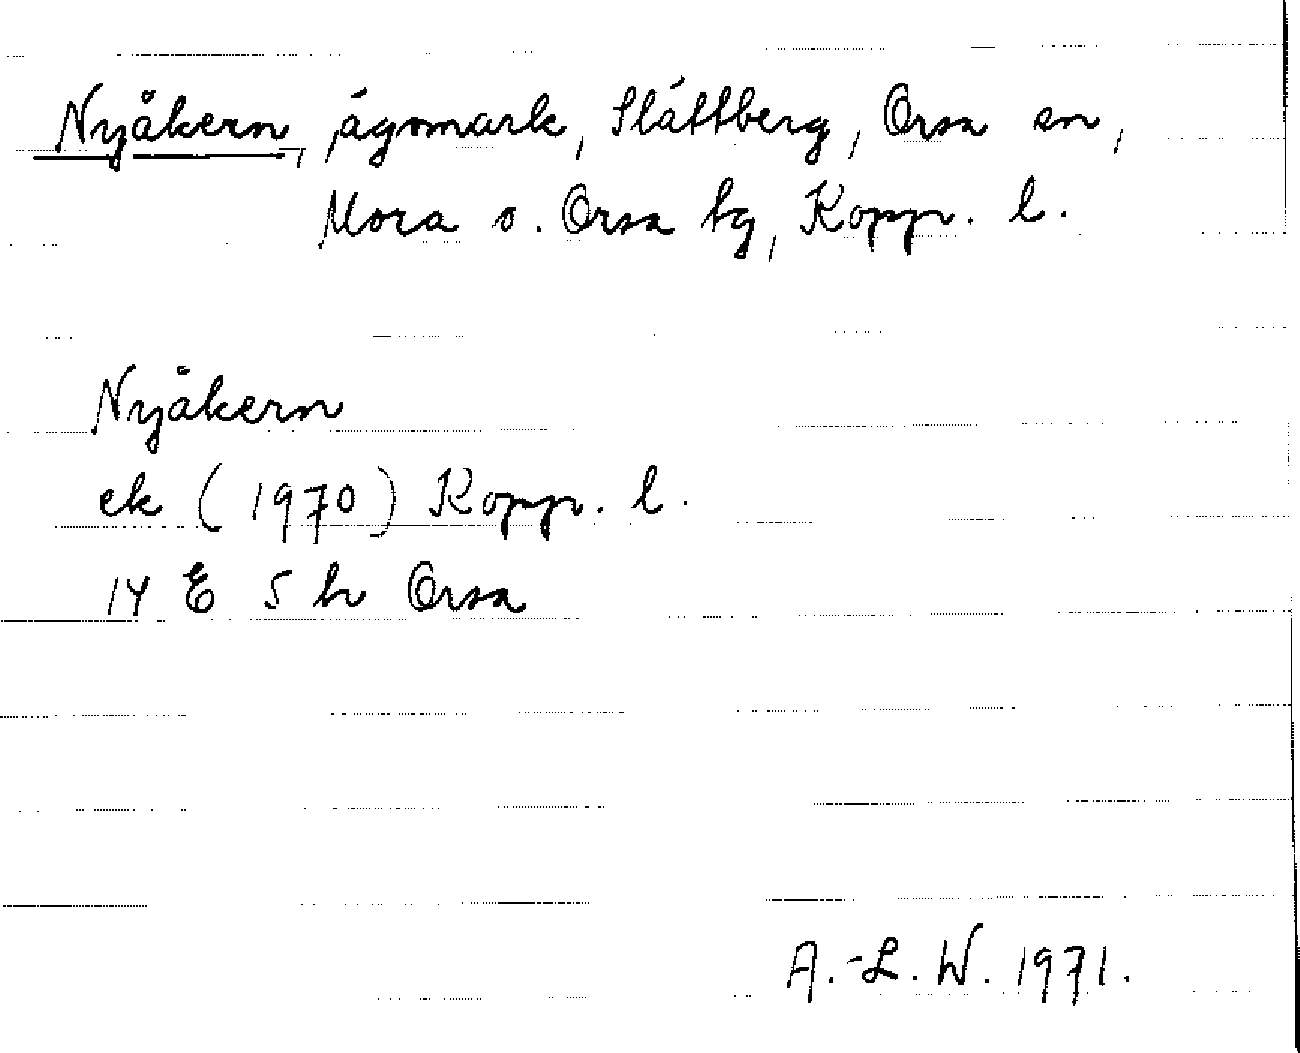 Nyåkern, ägomark, Slättberg, Orsa sn,
Mora o. Orsa tg, Kopp. l.
Nyåkern
ek (1970) Kopp. l.
14 E 5 h Orsa
A.-L. W. 1971.